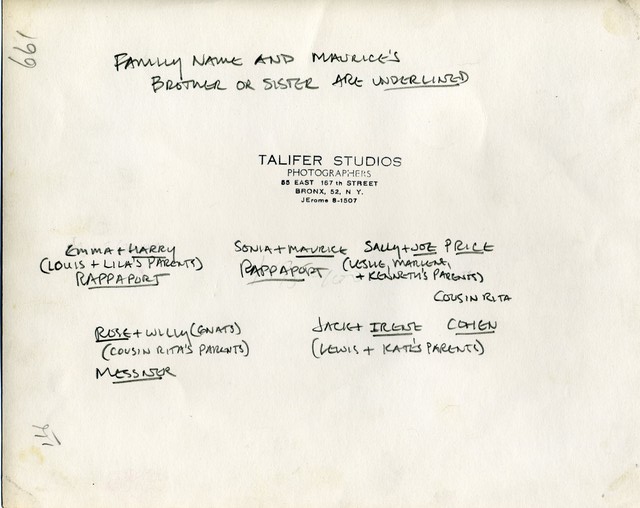 199
FAMILY NAME AND MAURICE'S
BROTHER OR SISTER ARE UNDERLINED
TALIFER STUDIOS
PHOTOGRAPHERS
85 EAST 167th STREET
BRONX, 52, N. Y.
JErome 8-1507
EMMA + HARRY
(LOUIS + LILA'S PARENTS)
RAPPAPORT
SONIA + MAURICE
RAPPAPORT
SALLY + JOE PRICE
(LESLIE, MARLENE,
+ KENNETH'S PARENTS)
COUSIN RITA
ROSE + WILLY (GNATS)
(COUSIN RITA'S PARENTS)
MESSNER
JACK + IRENE COHEN
(LEWIS + KATE'S PARENTS)